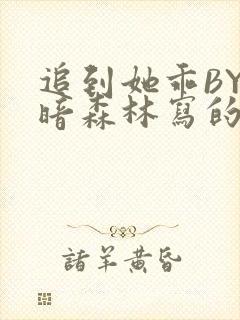 追到她乖BY
暗森林寫的
諸羊黃昏